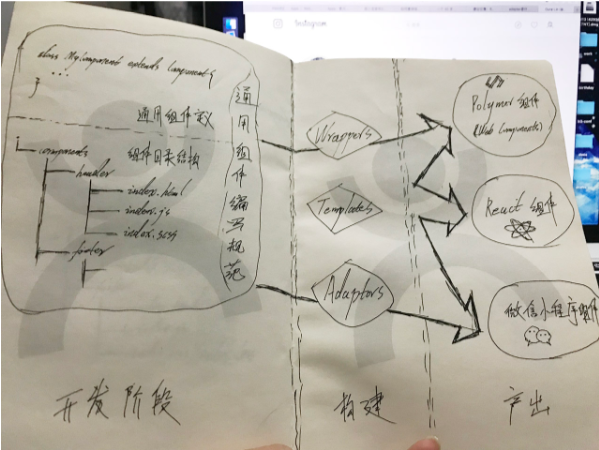 Instagram
class MyComponent extends Component{
...
}
通用组件定义
components
组件目录结构
header
index.html
index.js
index.scss
footer
通用组件编写规范
Wrappers
Templates
Adaptors
</>
Polymer 组件
(Web Components)
React 组件
微信小程序组件
开发阶段
构建
产出